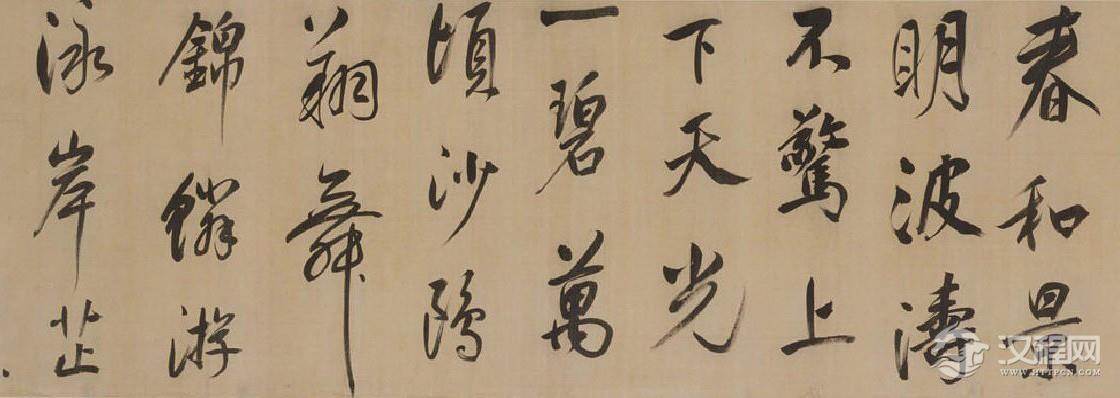 春和景
明波濤
不驚上
下天光
一碧萬
頃沙鷗
翔舞
錦鱗游
泳岸芷
汉程网
WWW.HTTPCN.COM